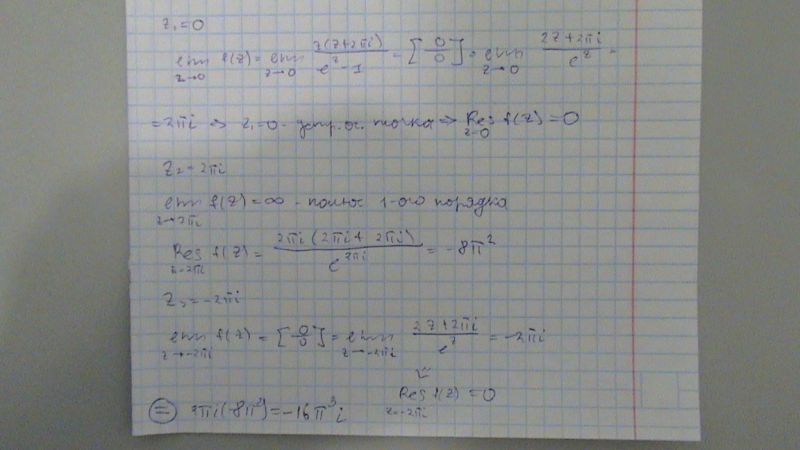 z₁=0
lim z→0 f(z) = lim z→0 z(z+2πi)/(e^z-1) = [0/0] = lim z→0 (2z+2πi)/e^z =
= 2πi ⇒ z₁=0 - устр. ос. точка ⇒ Res z=0 f(z) = 0
z₂=2πi
lim z→2πi f(z) = ∞ - полюс 1-ого порядка
Res z=2πi f(z) = 2πi(2πi+2πi)/e^(2πi) = -8π²
z₃=-2πi
lim z→-2πi f(z) = [0/0] = lim z→-2πi (2z+2πi)/e^z = -2πi
⇓
Res z=-2πi f(z) = 0
⊜ 2πi(-8π²) = -16π³i